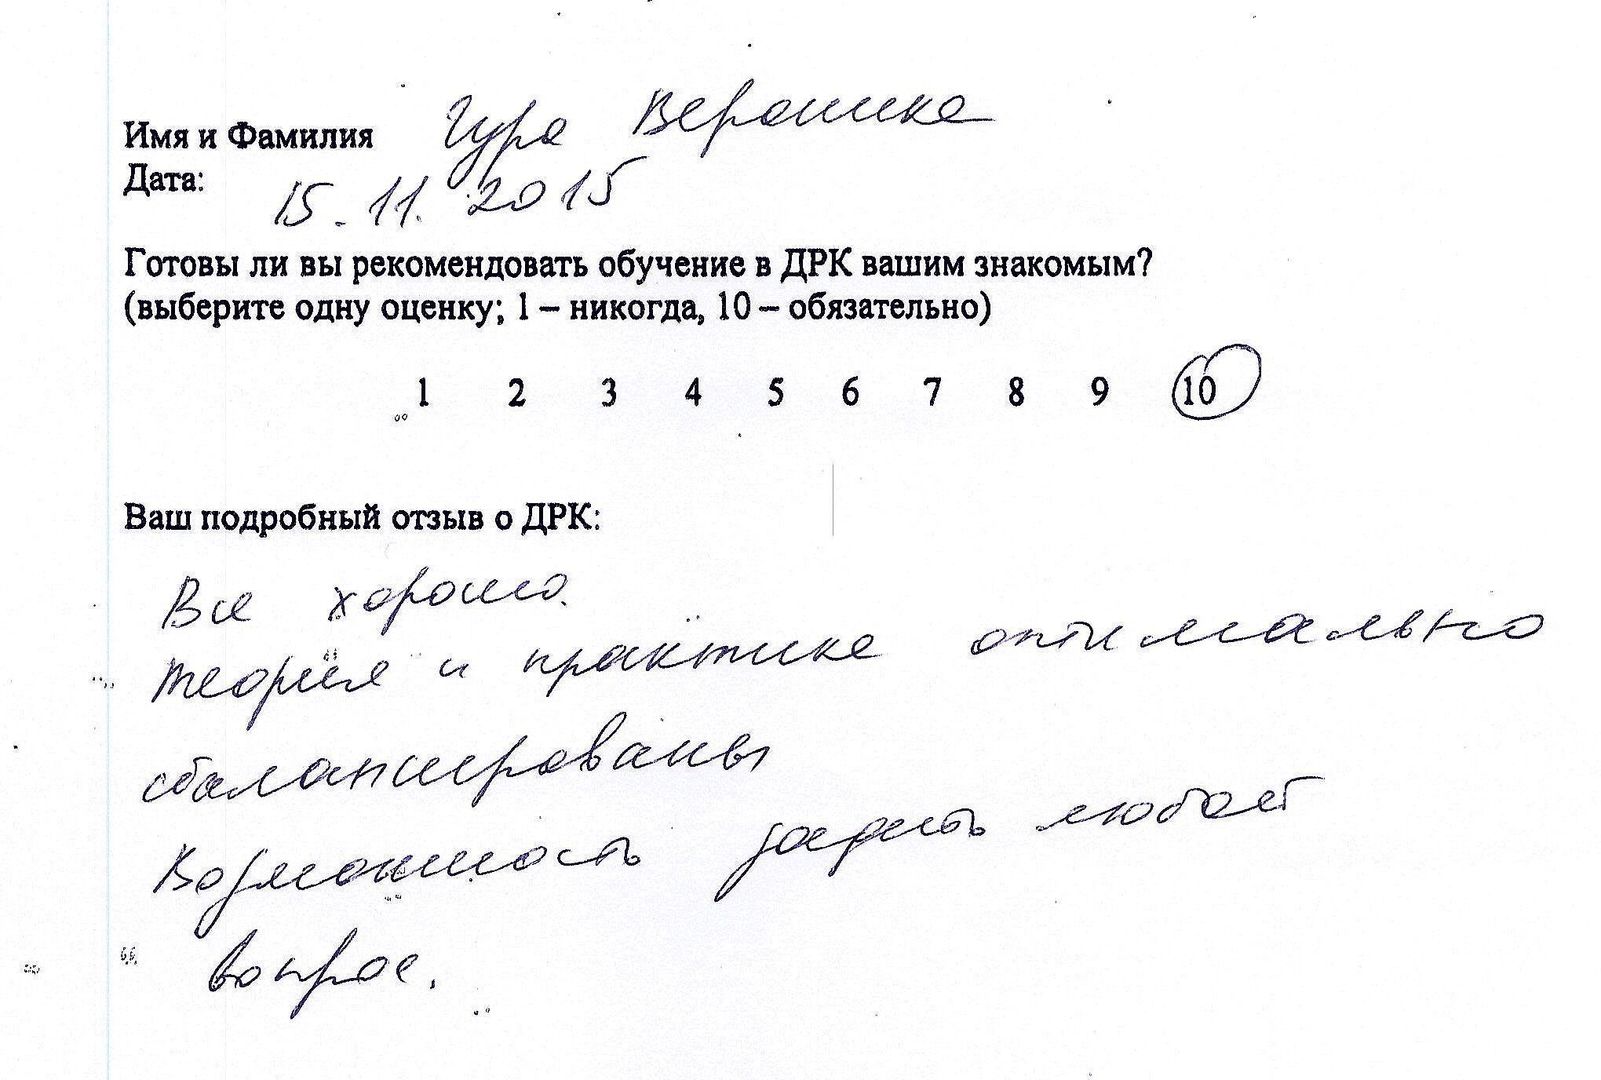 Имя и Фамилия Гура Вероника
Дата: 15.11.2015
Готовы ли вы рекомендовать обучение в ДРК вашим знакомым?
(выберите одну оценку; 1 – никогда, 10 – обязательно)
1 2 3 4 5 6 7 8 9 10
Ваш подробный отзыв о ДРК:
Все хорошо.
Теория и практика оптимально
сбалансированы
Возможность задать любой
вопрос.